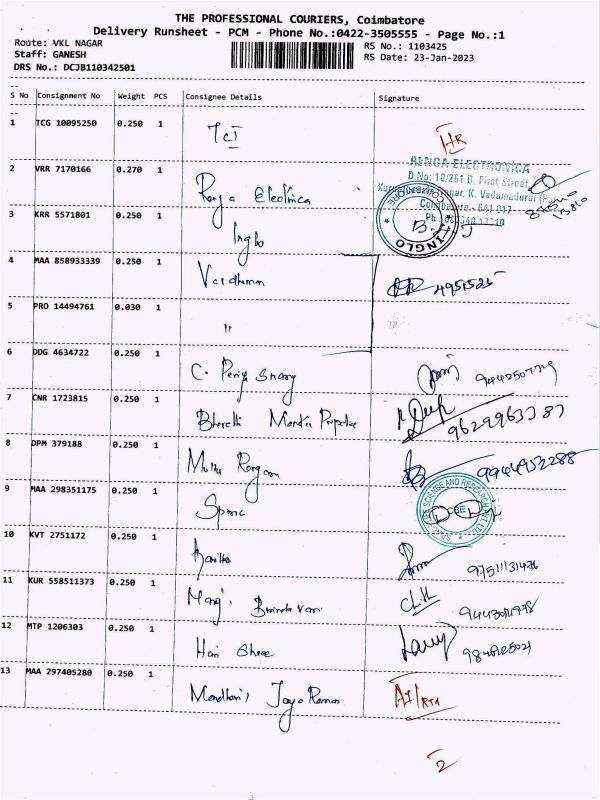 THE PROFESSIONAL COURIERS, Coimbatore
Delivery Runsheet - PCM - Phone No.:0422-3505555 - Page No.:1
Route: VKL NAGAR
RS No.: 1103425
Staff: GANESH
RS Date: 23-Jan-2023
DRS No.: DCJB110342501
S No Consignment No Weight PCS Consignee Details Signature
1 TCG 10095250 0.250 1 TCI
2 VRR 7170166 0.270 1 Ranga Electronica
RENGA ELECTRONICA
D.No: 10/261 B, First Street
K. Vadamadurai
Coimbatore - 641 017
3 KRR 5571801 0.250 1 Inglo
COIMBATORE
INGLO
4 MAA 858933339 0.250 1 Vardhaman 4951525
5 PRO 14494761 0.030 1 "
6 DDG 4634722 0.250 1 C. Periya Swamy
7 CNR 1723815 0.250 1 Bharathi
8 DPM 379188 0.250 1 Muthu Rangan
9 MAA 298351175 0.250 1
SCIENCE AND RESEARCH
CBE
10 KVT 2751172 0.250 1
11 KUR 558511373 0.250 1
12 MTP 1206303 0.250 1 Hari Shree
13 MAA 297405280 0.250 1 Jaya Raman
2